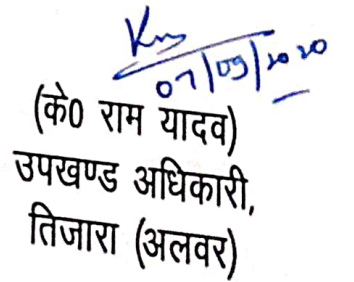 07/09/2020
(के0 राम यादव)
उपखण्ड अधिकारी,
तिजारा (अलवर)